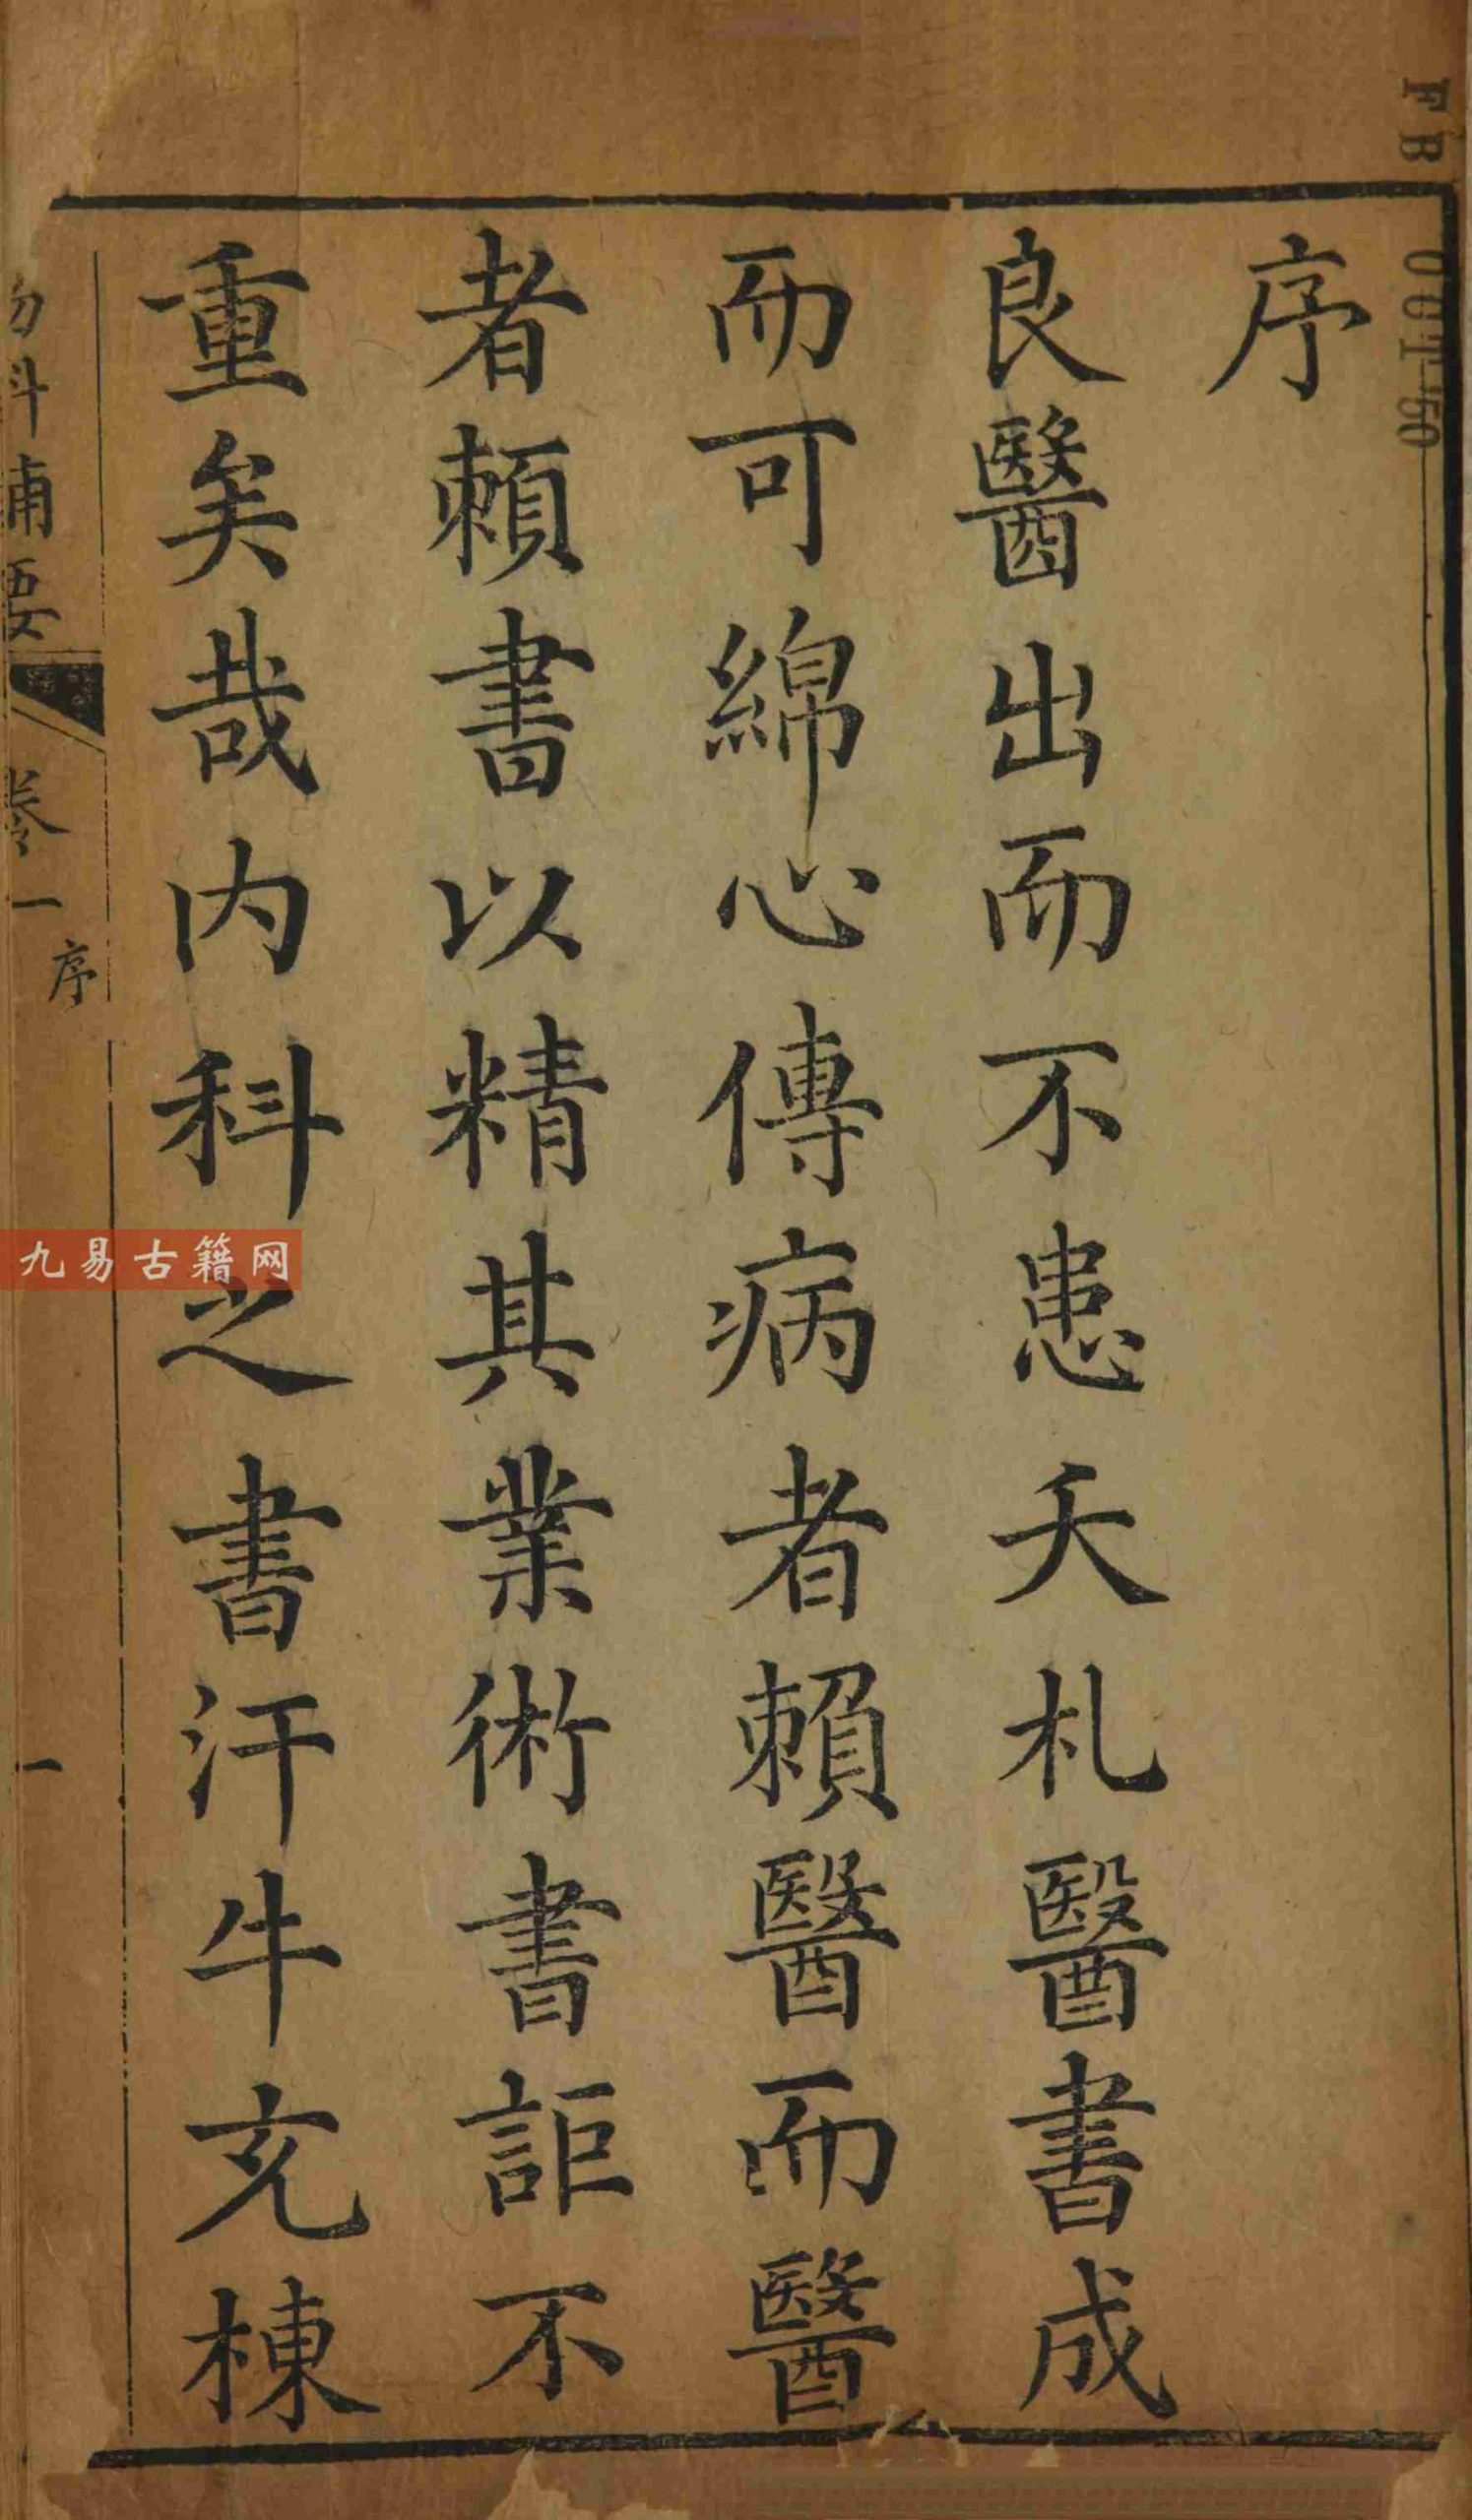 序
良醫出而不患夭札醫書成
而可綿心傳病者賴醫而醫
者賴書以精其業術書詎不
重矣哉内科之書汗牛充棟
科補要 卷一 序 一
九易古籍网